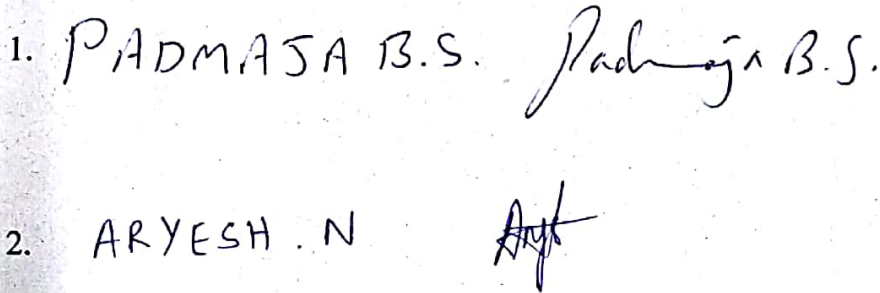 1. PADMAJA B.S. Padmaja B.S.
2. ARYESH . N